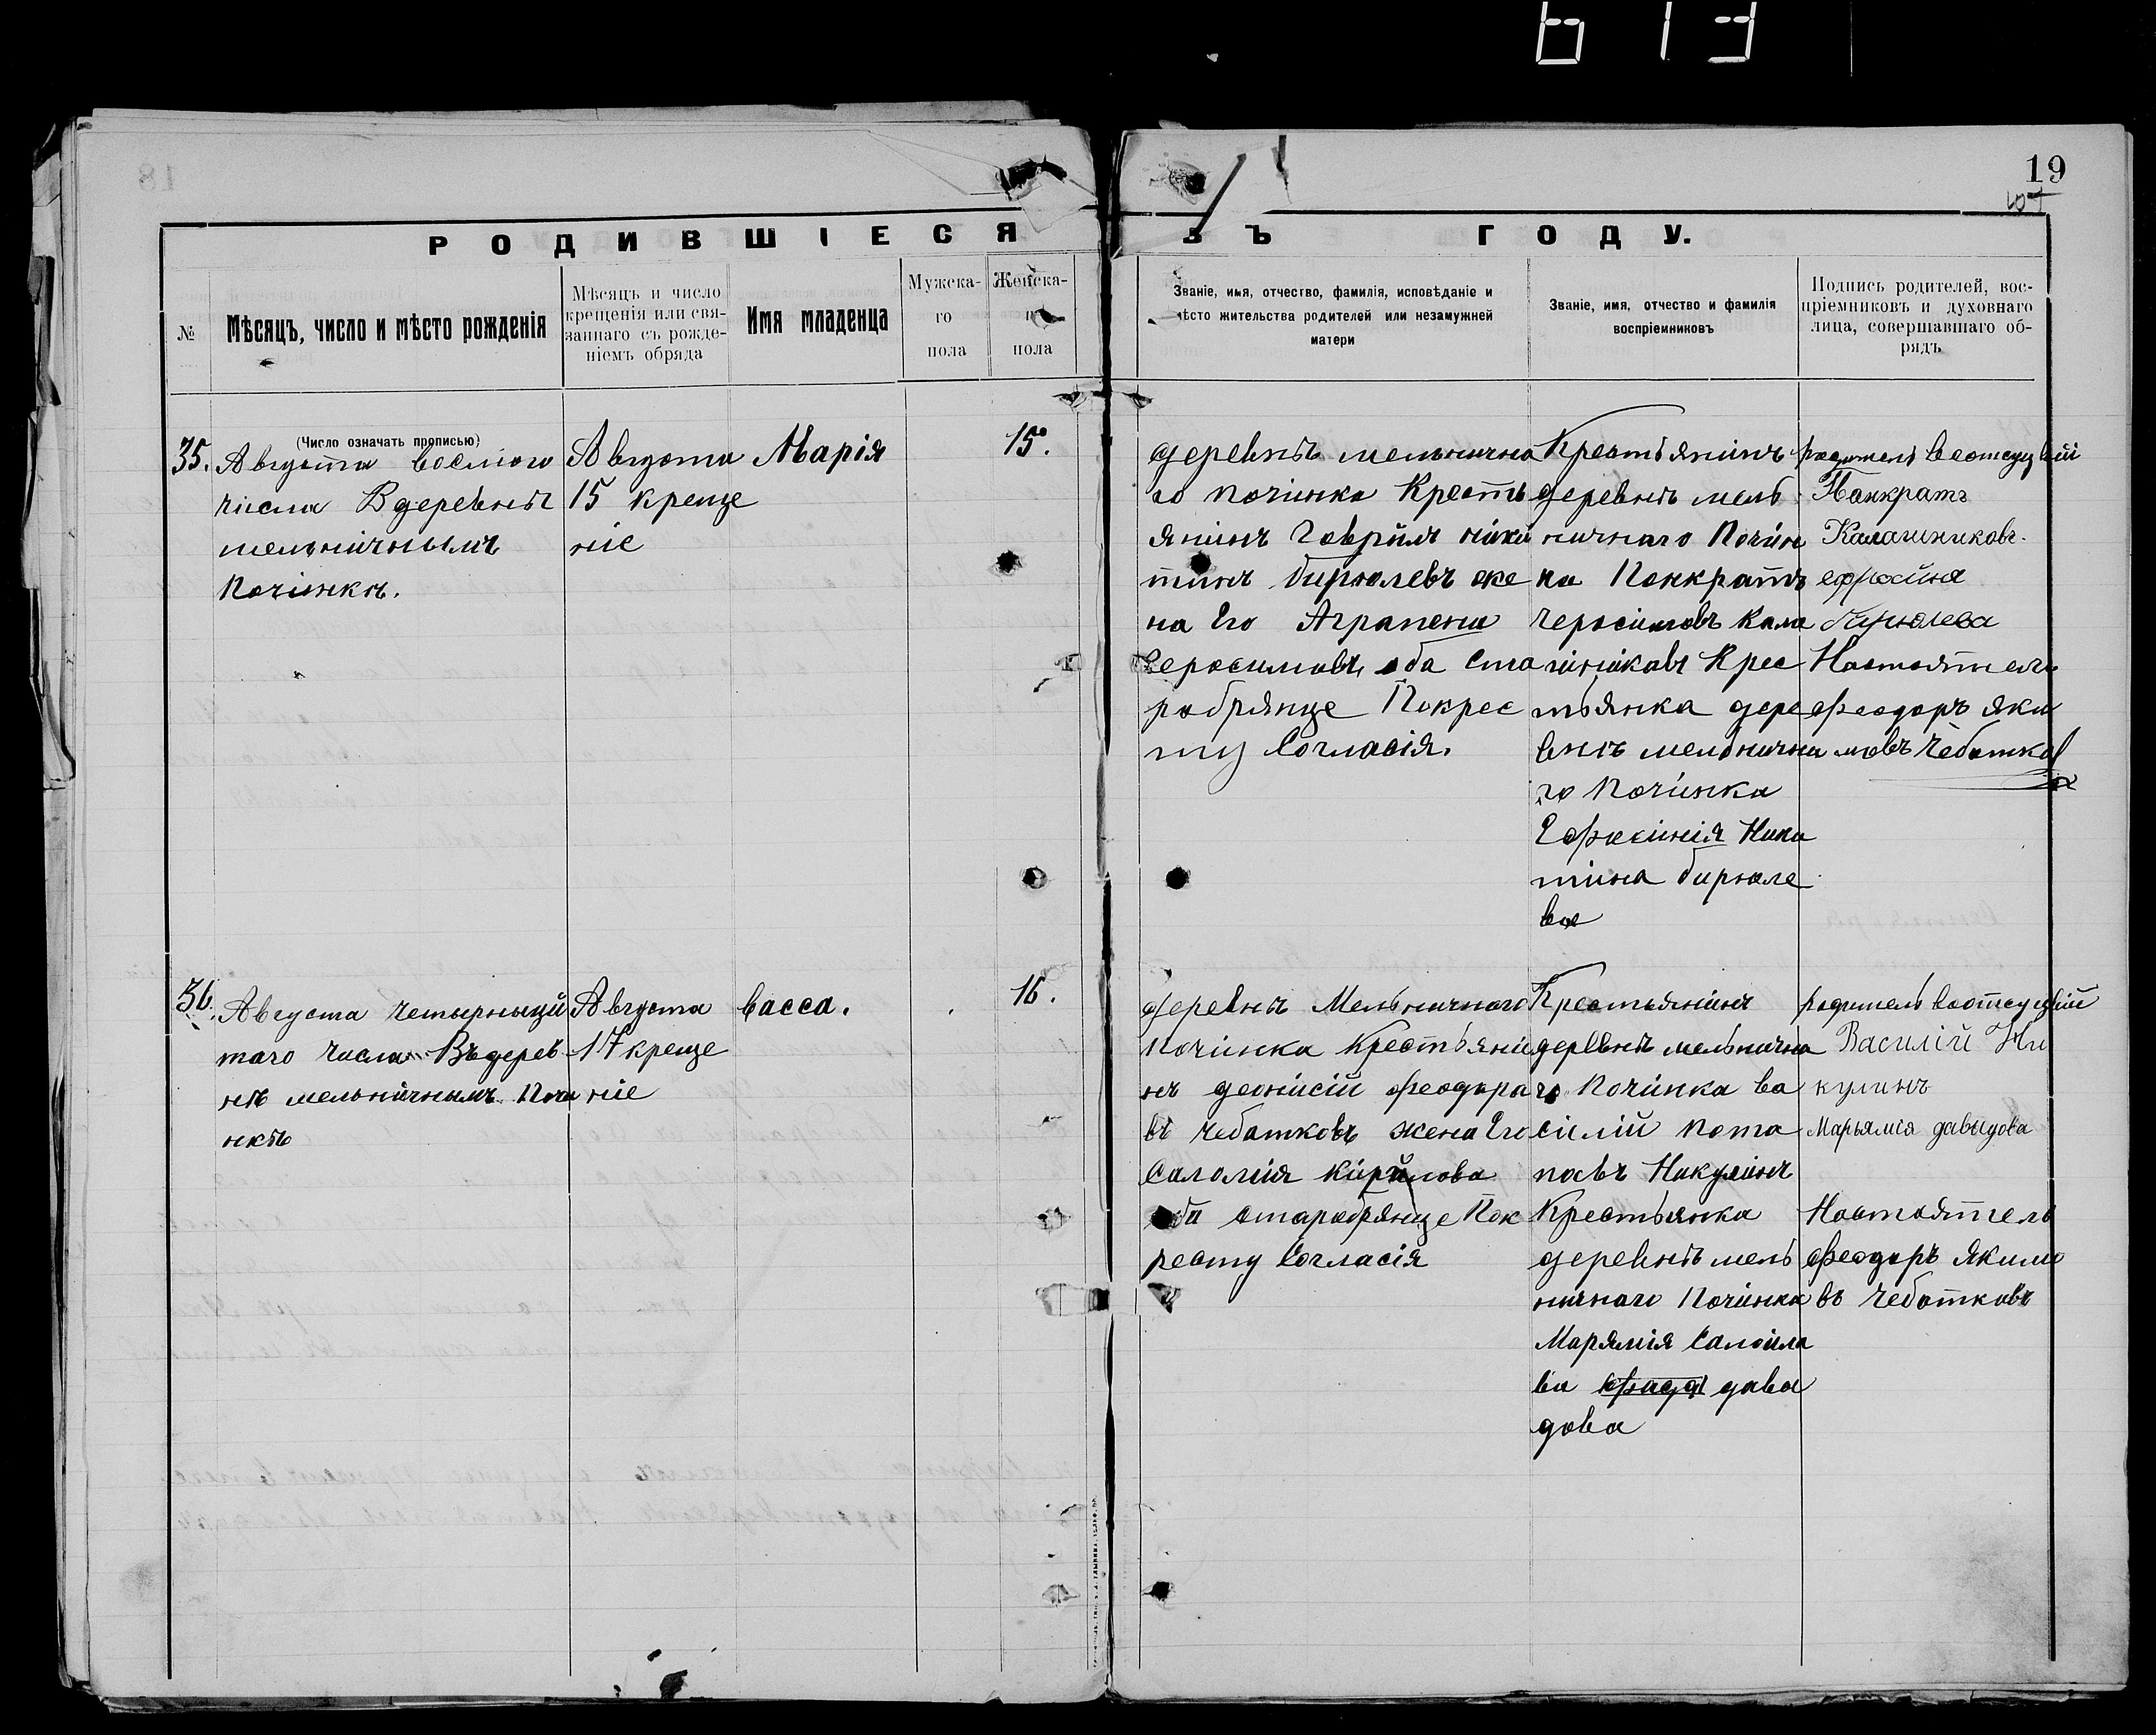 19
РОДИВШІЕСЯ ВЪ ГОДУ.
№
Мѣсяцъ, число и мѣсто рожденія
Мѣсяцъ и число
крещенія или свя-
заннаго съ рожде-
ніемъ обряда
Имя младенца
Мужска-
го
пола
Женска-
пола
Званіе, имя, отчество, фамилія, исповѣданіе и
мѣсто жительства родителей или незамужней
матери
Званіе, имя, отчество и фамилія
воспріемниковъ
Подпись родителей, вос-
пріемниковъ и духовнаго
лица, совершавшаго об-
рядъ
(Число означать прописью)
35.
Августа восмого
числа Вдеревнѣ
мельничнымъ
Починкѣ.
Августа
15 креще
ніе
Марія
15.
деревнѣ мельнично
го починка Кресть
янинъ Гаврилъ ники
тинъ бирюлевъ же
на Его Аграпена
Геросимовъ оба ста
робрянце Покрес
ту Согласія.
Крестьянинъ
деревнѣ мель
ничнаго Почин
ка Панкратъ
Геросимовъ Кала
шниковъ Крес
тьянка дере
внѣ мельнична
го Починка
Ефросинія Ники
тина бирюле
ва
родитель
Панкратъ
Калашниковъ.
ефросиня
бирюлева
Настоятель
феодоръ яки
мовъ Чебатков
36.
Августа четырнацй
таго числа Въдерев
нѣ мельничнымъ Почи
нкѣ
Августа
17 креще
ніе
васса.
16.
деревнѣ Мельничнаго
починка Крестьяни
нъ деонисій феодора
въ Чебатковъ жена Его
Саломія Кирилова
оба старобрянце Пок
ресту Согласія
Крестьянинъ
деревнѣ мельнична
го Починка ва
силій пота
повъ Никулинъ
Крестьянка
деревнѣ мель
ничнаго Починка
Марямія Самойла
ва давы
дова
родитель
Василій Ни
кулинъ
Марьямія давыдова
Настоятель
феодоръ Якимо
въ Чебатковъ